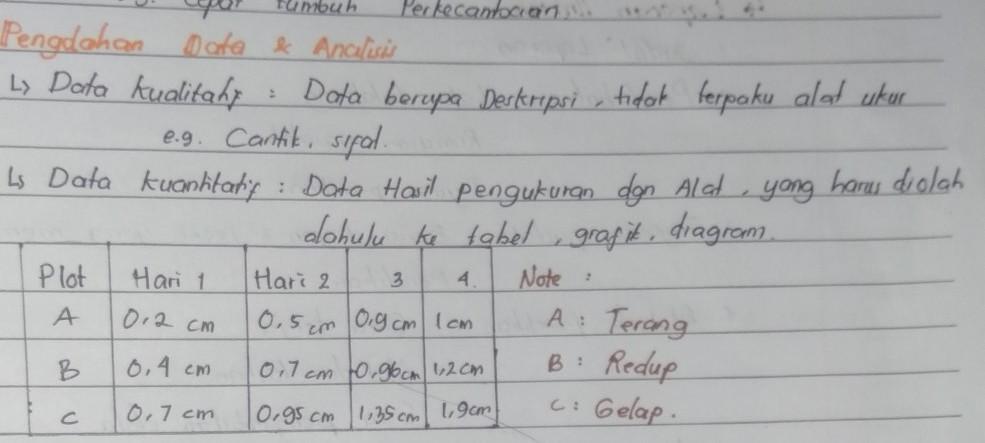 Cepat tumbuh Perkecambahan
Pengolahan Data & Analisis
↳ Data kualitatif : Data berupa Deskripsi, tidak terpaku alat ukur
e.g. Cantik, sifat.
↳ Data kuantitatif : Data Hasil pengukuran dgn Alat, yang harus diolah
dahulu ke tabel, grafik, diagram.
Plot Hari 1 Hari 2 3 4. Note :
A 0,2 cm 0,5 cm 0,9 cm 1 cm A : Terang
B 0,4 cm 0,7 cm 0,96 cm 1,2 cm B : Redup
C 0,7 cm 0,95 cm 1,35 cm 1,9 cm C : Gelap.